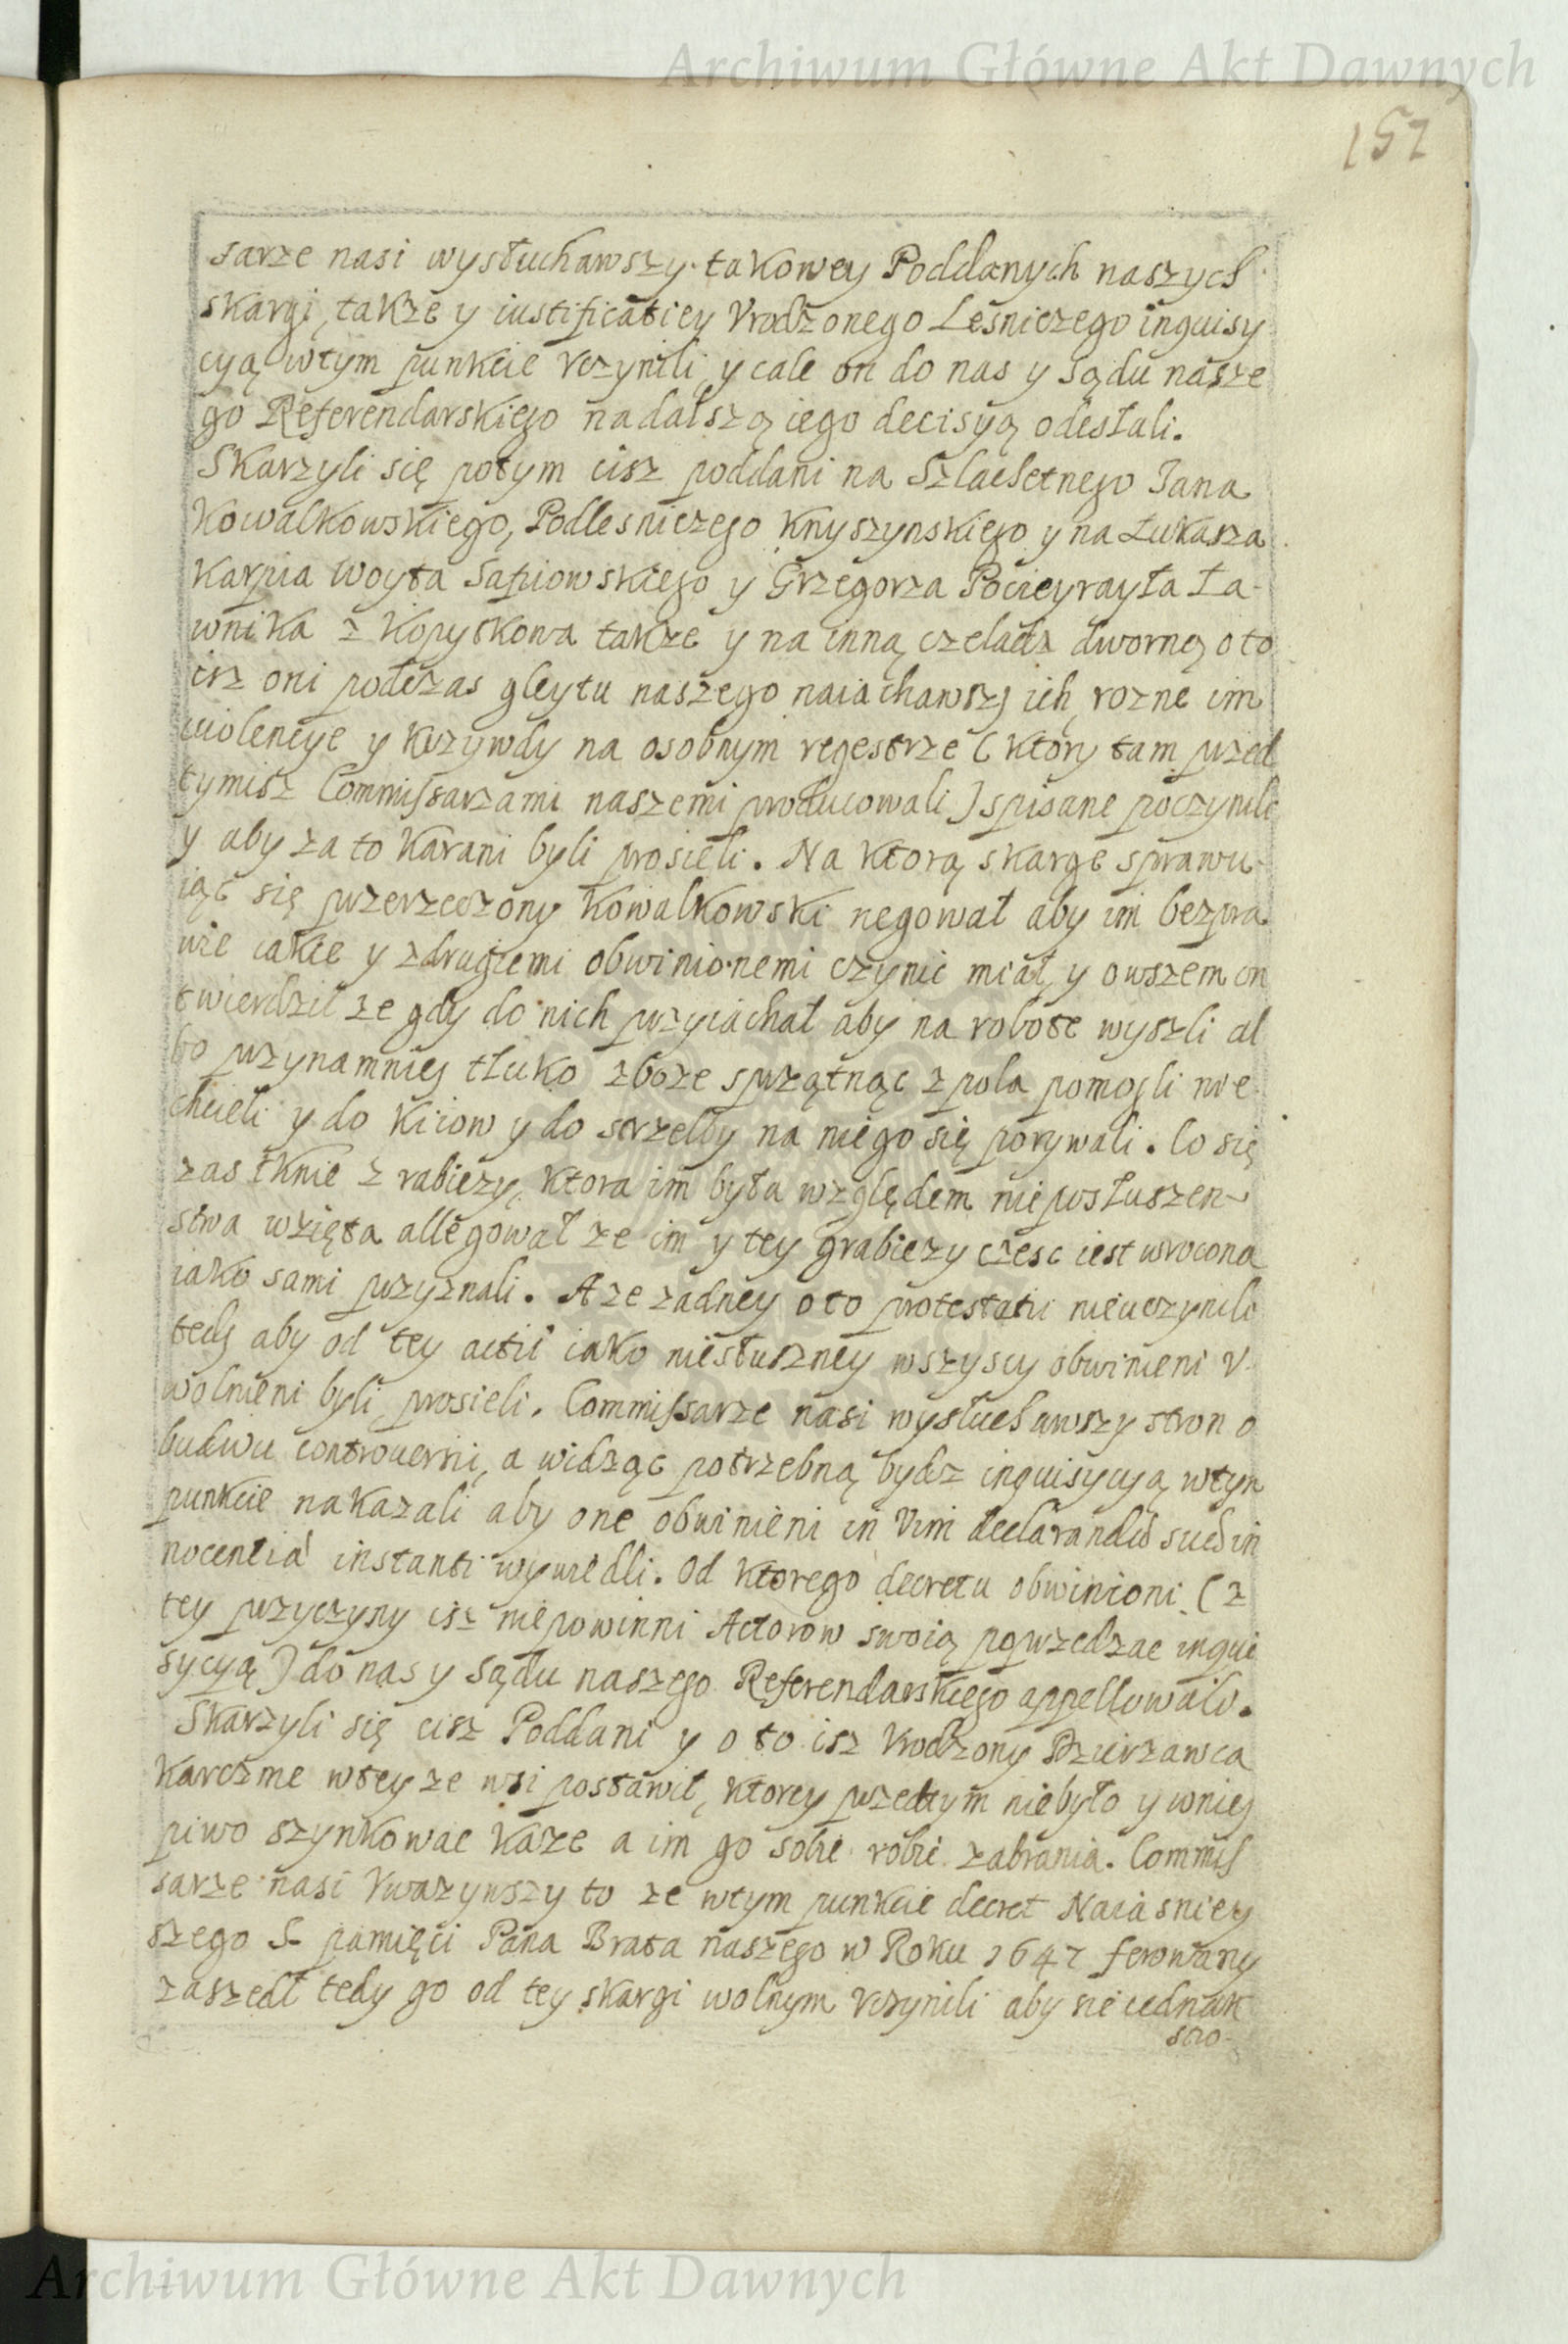 Archiwum Główne Akt Dawnych
157
sarze nasi wysłuchawszy takowey Poddanych naszych
skargi, także y iustificatiey Vrodzonego Leśniczego inquisy
cyą wtym punkcie Vczynili, y cale on do nas y Sądu nasze
go Referendarskiego na dalszą iego decisyą odesłali.
Skarzyli się potym cisz poddani na Szlachetnego Jana
Kowalkowskiego, Podlesniczego Knyszynskiego y na Łukasza
Karpia Woyta Sapiowskiego y Grzegorza Pocieyrayła Ła-
wnika z Kopyskowa także y na inną czeladz dworną o to
isz oni podczas gleytu naszego naiachawszy ich, rozne im
violencye y krzywdy na osobnym regestrze (ktory tam przed
tymisz Commissarzami naszemi producowali) spisane poczynili
y aby za to karani byli prosieli. Na ktorą skarge sprawu-
iąc się przerzeczony Kowalkowski negował aby im bezpra
wie iakie y zdrugiemi obwinionemi czynic miał, y owszem on
twierdził ze gdy do nich przyiachał aby na robote wyszli al
bo przynamniey tłuko zboze sprzątnąc z pola pomogli nie
chcieli y do kiiow y do strzelby na niego się porywali. Co się
zas tknie z rabiezy, ktora im była względem nieposłuszen-
stwa wzięta allegował ze im y tey grabiezy czesc iest wrocona
iako sami przyznali. A ze zadney o to protestatii nieuczynili
tedy aby od tey actii iako niesłuszney wszyscy obwinieni V-
wolnieni byli, prosieli. Commissarze nasi wysłuchawszy stron o
budwu controuersii, a widząc potrzebną bydz inquisycyą wtym
punkcie nakazali aby one obwinieni in Vim declarandæ suæ in
nocentiæ instanti wywiedli. Od ktorego decretu obwinioni (z
tey przyczyny isz niepowinni Actorow swoią poprzedzac inqui
sycyą) do nas y Sądu naszego Referendarskiego appellowali.
Skarzyli się cisz Poddani y o to isz Vrodzony Dzierzawca
Karczme wteyze wsi postawił, ktorey przedtym niebyło y wniey
piwo szynkowac każe a im go sobie robic zabrania. Commis
sarze nasi Vwazywszy to ze wtym punkcie decret Naiasniey
szego S. pamięci Pana Brata naszego w Roku 1647 ferowany
zaszedł tedy go od tey skargi wolnym Vczynili aby sie iednak
Archiwum Główne Akt Dawnych